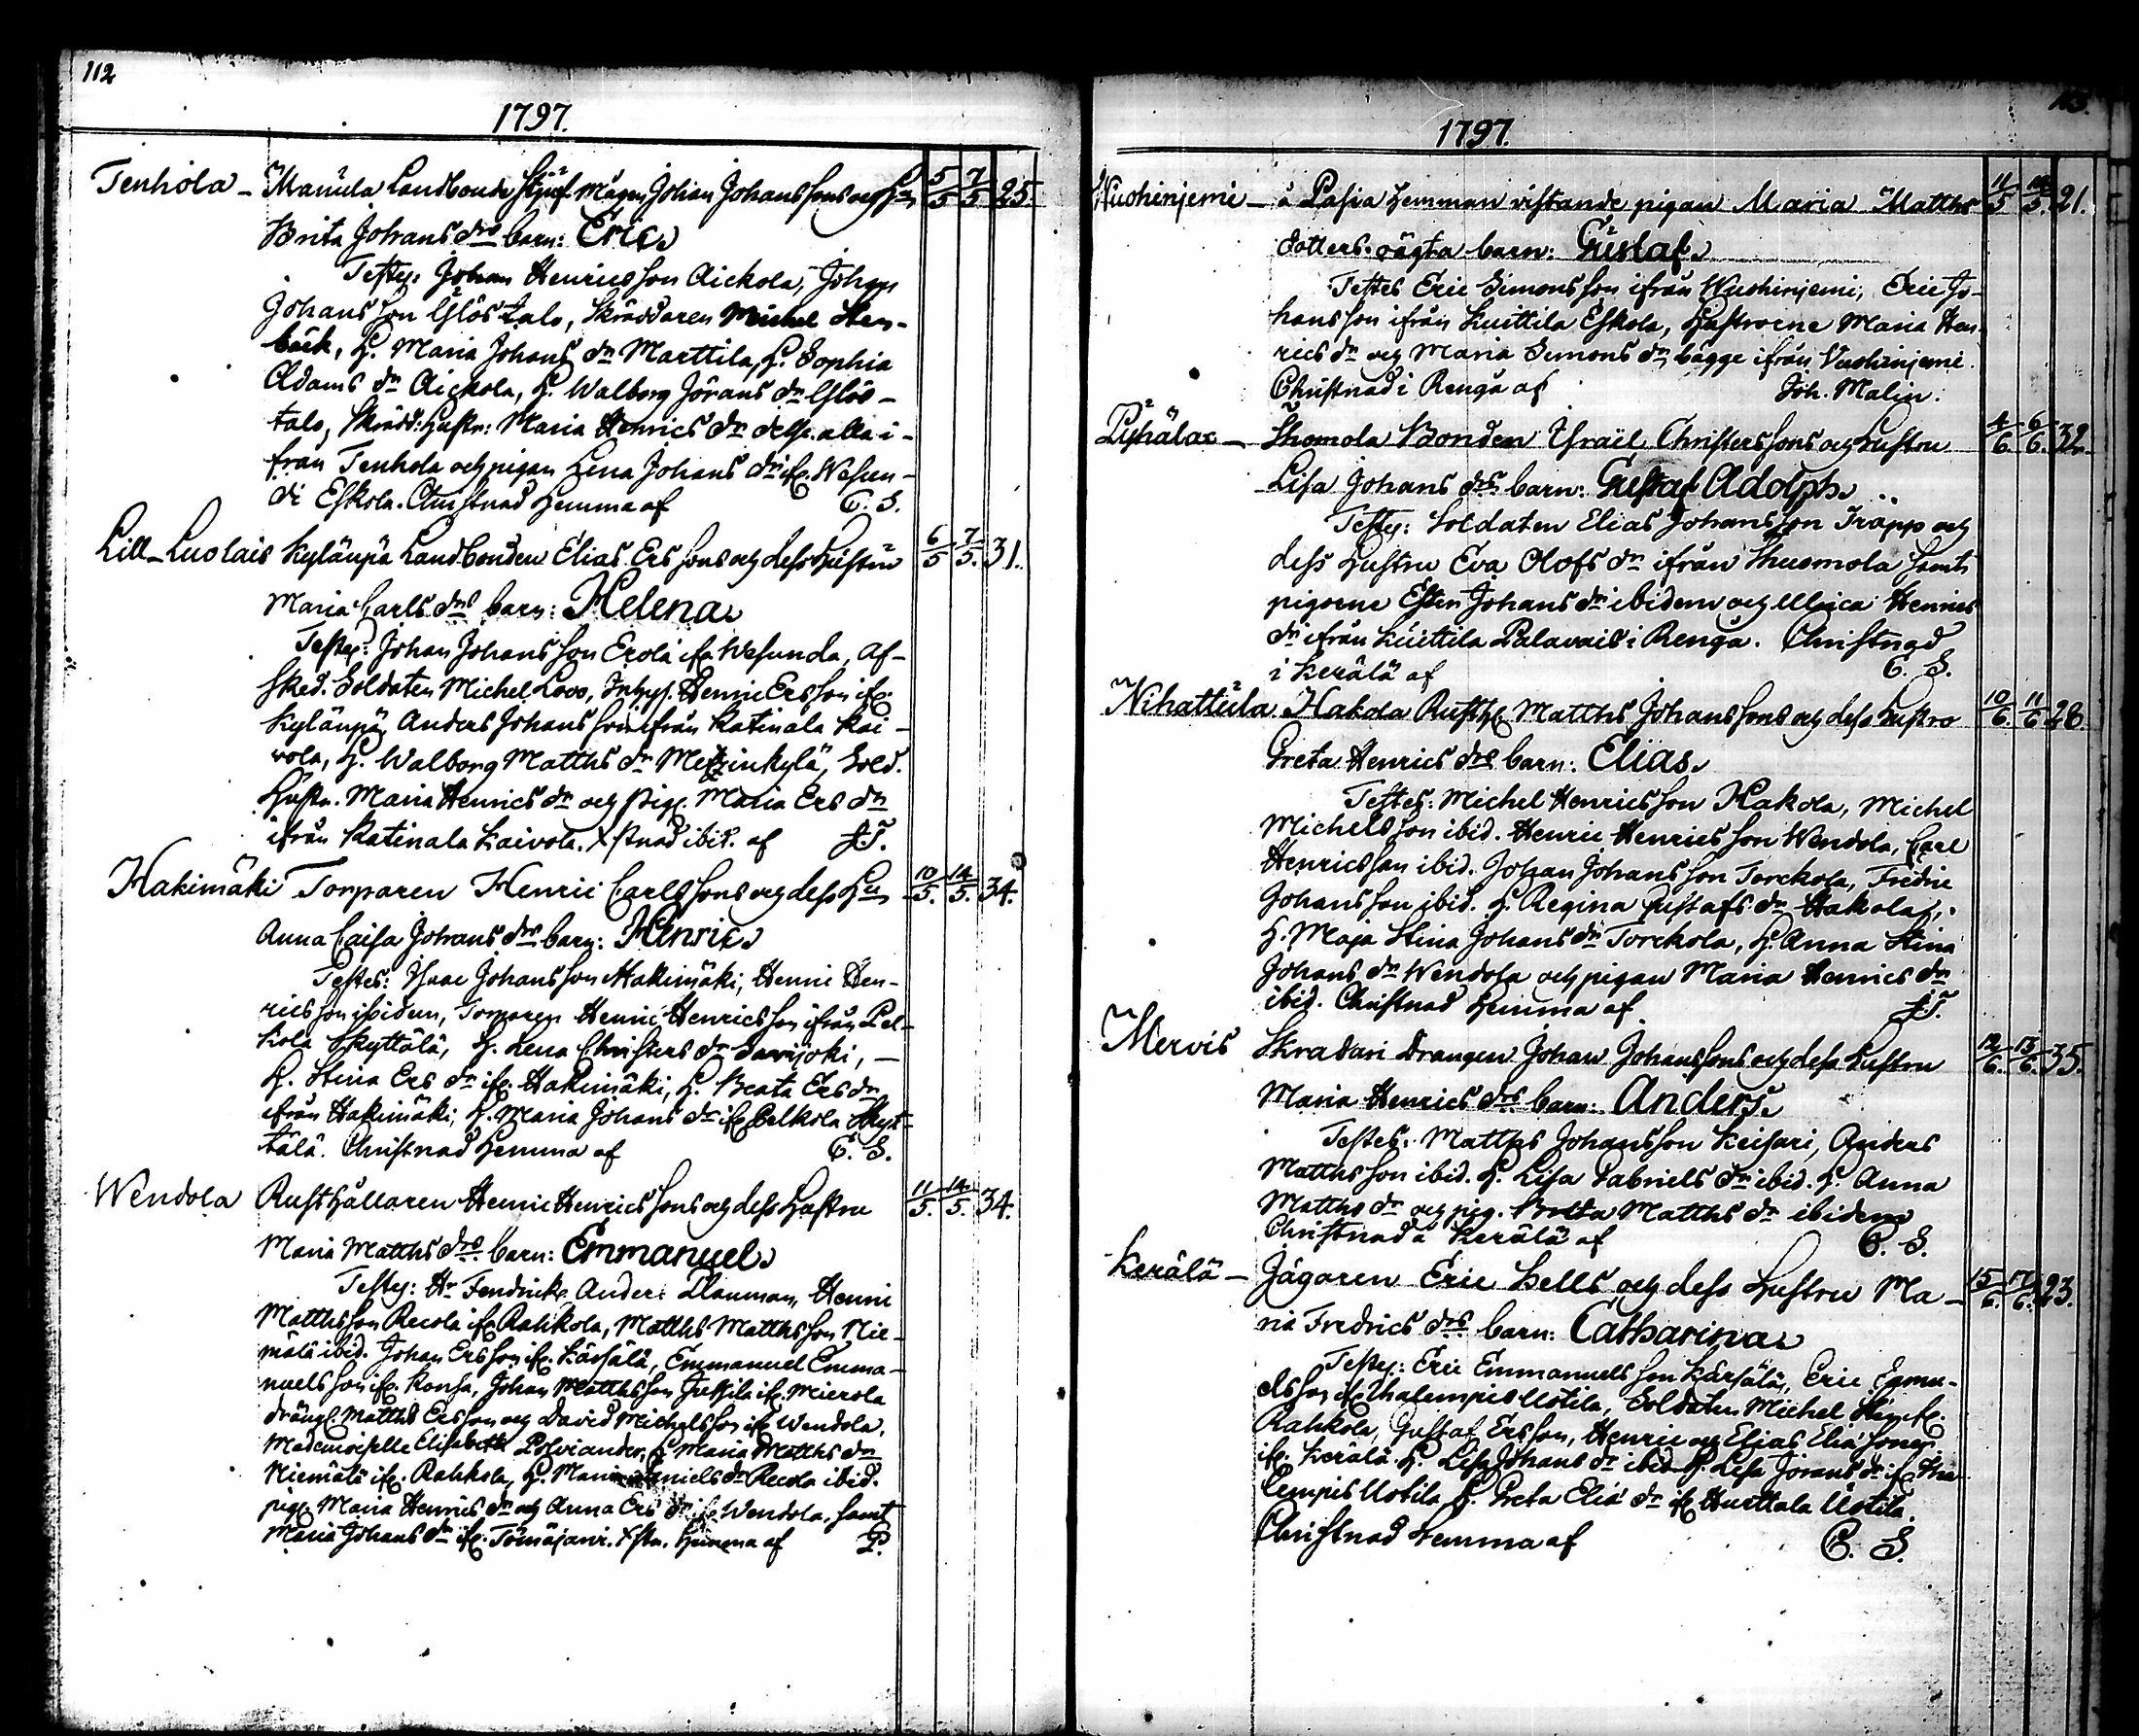 112
1797.
Tenhola - Mannila Landbonde Mågen Johan Johanssons och H:us 5/5 7/5 25.
Brita Johans drs barn: Eric
Testes: Johan Henricsson Aickola, Johan
Johansson Ylöstalo, Skräddaren Michel Sten-
bäck, H. Maria Johans dr Marttila, H. Sophia
Adams dr Aickola, H. Walborg Jörans dr Ylös-
talo, Skrädd: Hustr: Maria Henrics dr alla i-
från Tenhola och pigan Lena Johans dr ifr. Wesun-
di Eskola. Christnad hemma af C. S.
Lill-Luolais Kylänpä Landbonden Elias Ers sons och dess Hustru 6/5 7/5. 31.
Maria Carls drs barn: Helena
Testes: Johan Johansson Erola ifr Wesunda, Af-
sked. Soldaten Michel Lovo, Inhys. Henric Ersson ifr.
Kylänpä, Anders Johansson ifrån Katinala Kai-
vola, H. Walborg Matths dr Metzinkylä, Sold.
Hustr. Maria Henrics dr och pig. Maria Ers dr
ifrån Katinala Kaivola. Xstnad ibid. af J.T.
Hakimäki Torparen Henric Carlssons och dess H:us 10/5. 14/5. 34.
Anna Caisa Johans drs barn: Henric
Testes: Isaac Johansson Hakimäki, Henric Hen-
ricsson ibidem, Torparen Henric Henricsson ifrån Pel-
kola Skyttälä, H. Lena Christers dr Savijoki, -
H. Stina Ers dr ifr. Hakimäki, H. Beata Ers dr
ifrån Hakimäki, H. Maria Johans dr ifr Pelkola Skyt-
tälä. Christnad hemma af C. S.
Wendola Rusthållaren Henric Henrics sons och dess Hustru 11/5. 14/5. 34.
Maria Matths drs. barn: Emmanuel
Testes: Hr Fendrick Anders Henric
Matthsson Recola ifr Rahkola, Matths Matthsson Nie-
mälä ibid. Johan Ersson ifr. Kärsälä, Emmanuel Emma-
nuelsson ifr. Konsa, Johan Matthsson Jussila ifr. Meierola
dräng. Matths Ersson och David Michelsson ifr Wendola,
Mademoiselle Elisabeth Polviander, H Maria Matths dr
Niemälä ifr. Rahkola, H. Maria Daniels dr Recola ibid.
pig. Maria Henrics dr och Anna Ers dr ifr. Wendola, samt
Maria Johans dr ifr. Tömäjärvi. Xstn. hemma af P.
113.
1797.
Wuohinjemi - å Pasia hemman vistande pigan Maria Matths 11/5 14/5. 21.
dotters oägta barn: Gustaf
Testes Eric Simonsson ifrån Wuohinjemi, Eric Jo-
hansson ifrån Kuittila Eskola, Hustrurne Maria Hen-
rics dr och Maria Simons dr bägge ifrån Vuohinjemi.
Christnad i Renga af Joh. Malin.
Pyhälax - Thomola Bonden Israël Christerssons och hustru 4/6. 6/6. 32
Lisa Johans drs barn: Gustaf Adolph
Testes: Soldaten Elias Johansson Trapp och
dess hustru Eva Olofs dr ifrån Thuomola samt
pigorne Esten Johans dr ibidem och Ulrica Henrics
dr ifrån Kuittila Palavais i Renga. Christnad
i Kerälä af C. S.
Nihattula Hakola Rusth. Matths Johanssons och dess hustro 10/6. 11/6 28.
Greta Henrics drs barn: Elias
Testes: Michel Henricsson Hakola, Michel
Michelsson ibid. Henric Henricsson Wendola, Carl
Henricsson ibid. Johan Johansson Torckola, Fredric
Johansson ibid. H. Regina Gustafs dr Hakola,
H. Maja Stina Johans dr Torckola, H. Anna Stina
Johans dr Wendola och pigan Maria Henrics dr
ibid. Christnad hemma af J.T.
Mervis Skradari Drängen Johan Johanssons och dess hustru 12/6. 13/6. 35.
Maria Henrics drs barn: Anders
Testes: Matths Johansson Keisari, Anders
Matthsson ibid. H. Lisa Gabriels dr ibid. H. Anna
Matths dr och pig. Britta Matths dr ibidem
Christnad å Kerälä af C. S.
Kerälä - Jägaren Eric Hells och dess hustru Ma- 15/6. 17/6. 23.
ria Fredrics drs. barn: Catharina
Testes: Eric Emmanuelsson Kärsälä, Eric
elsson ifr Uotila, Soldaten Michel ifr.
Rahkola, Gustaf Ersson, Henric och Elias Elia söner
ifr. Kerälä. H. Lisa Johans dr ibid. H. Lisa Jörans dr ifr
Uotila, H. Greta Elia dr ifr Hurttala Uotila.
Christnad hemma af C. S.